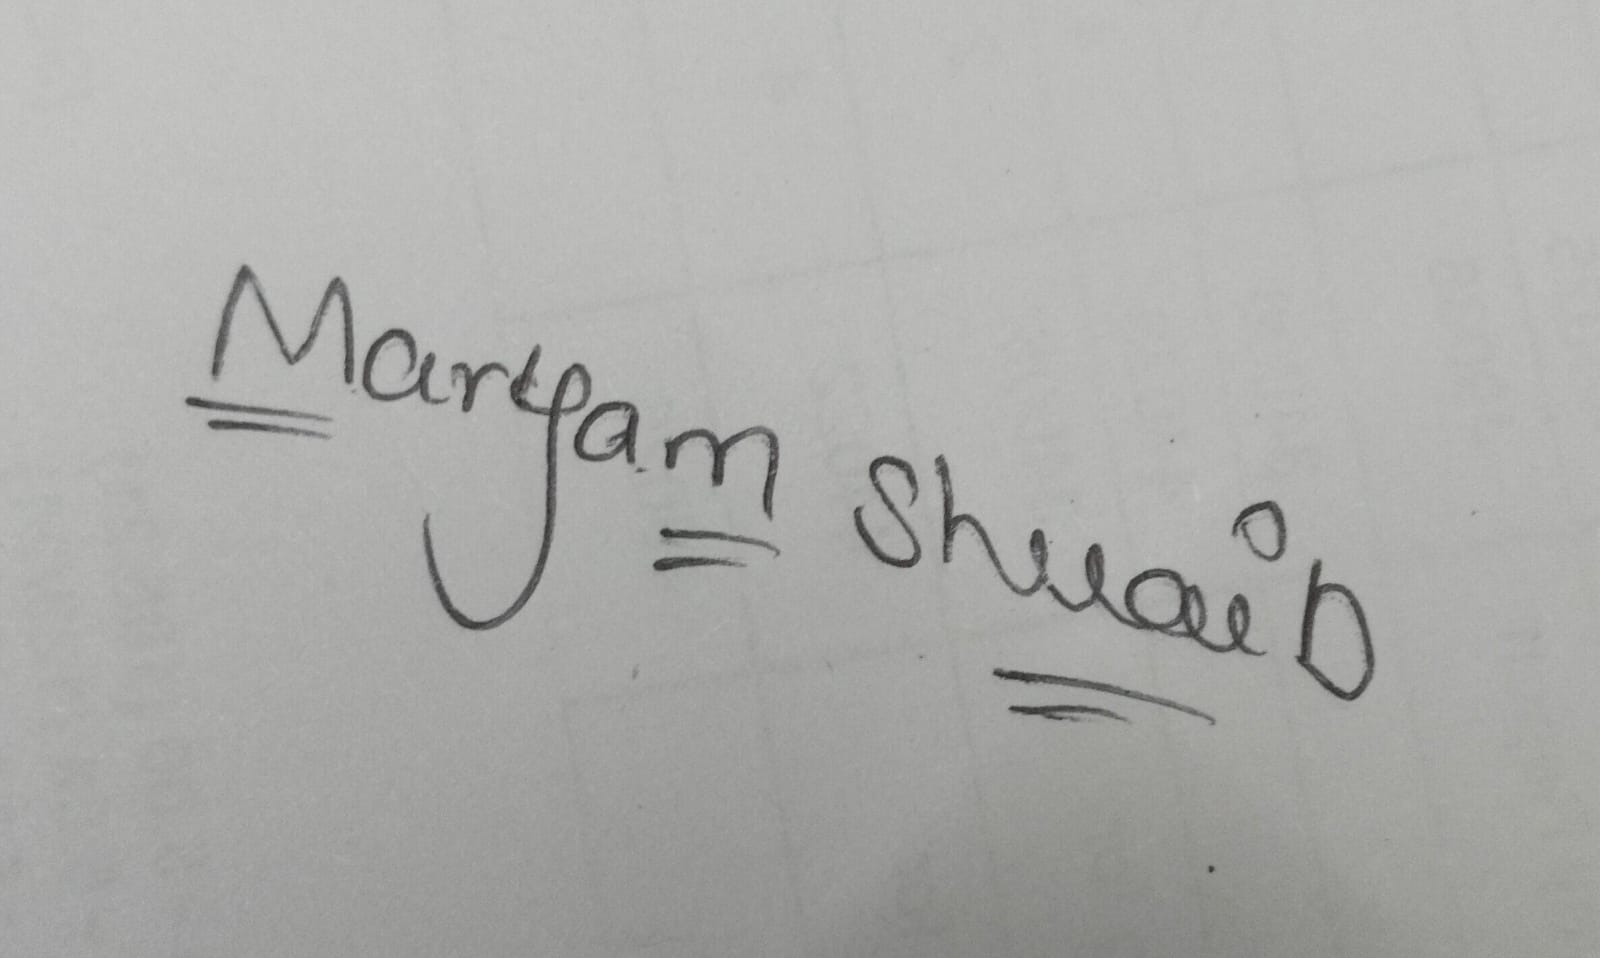 Maryam Shuaib